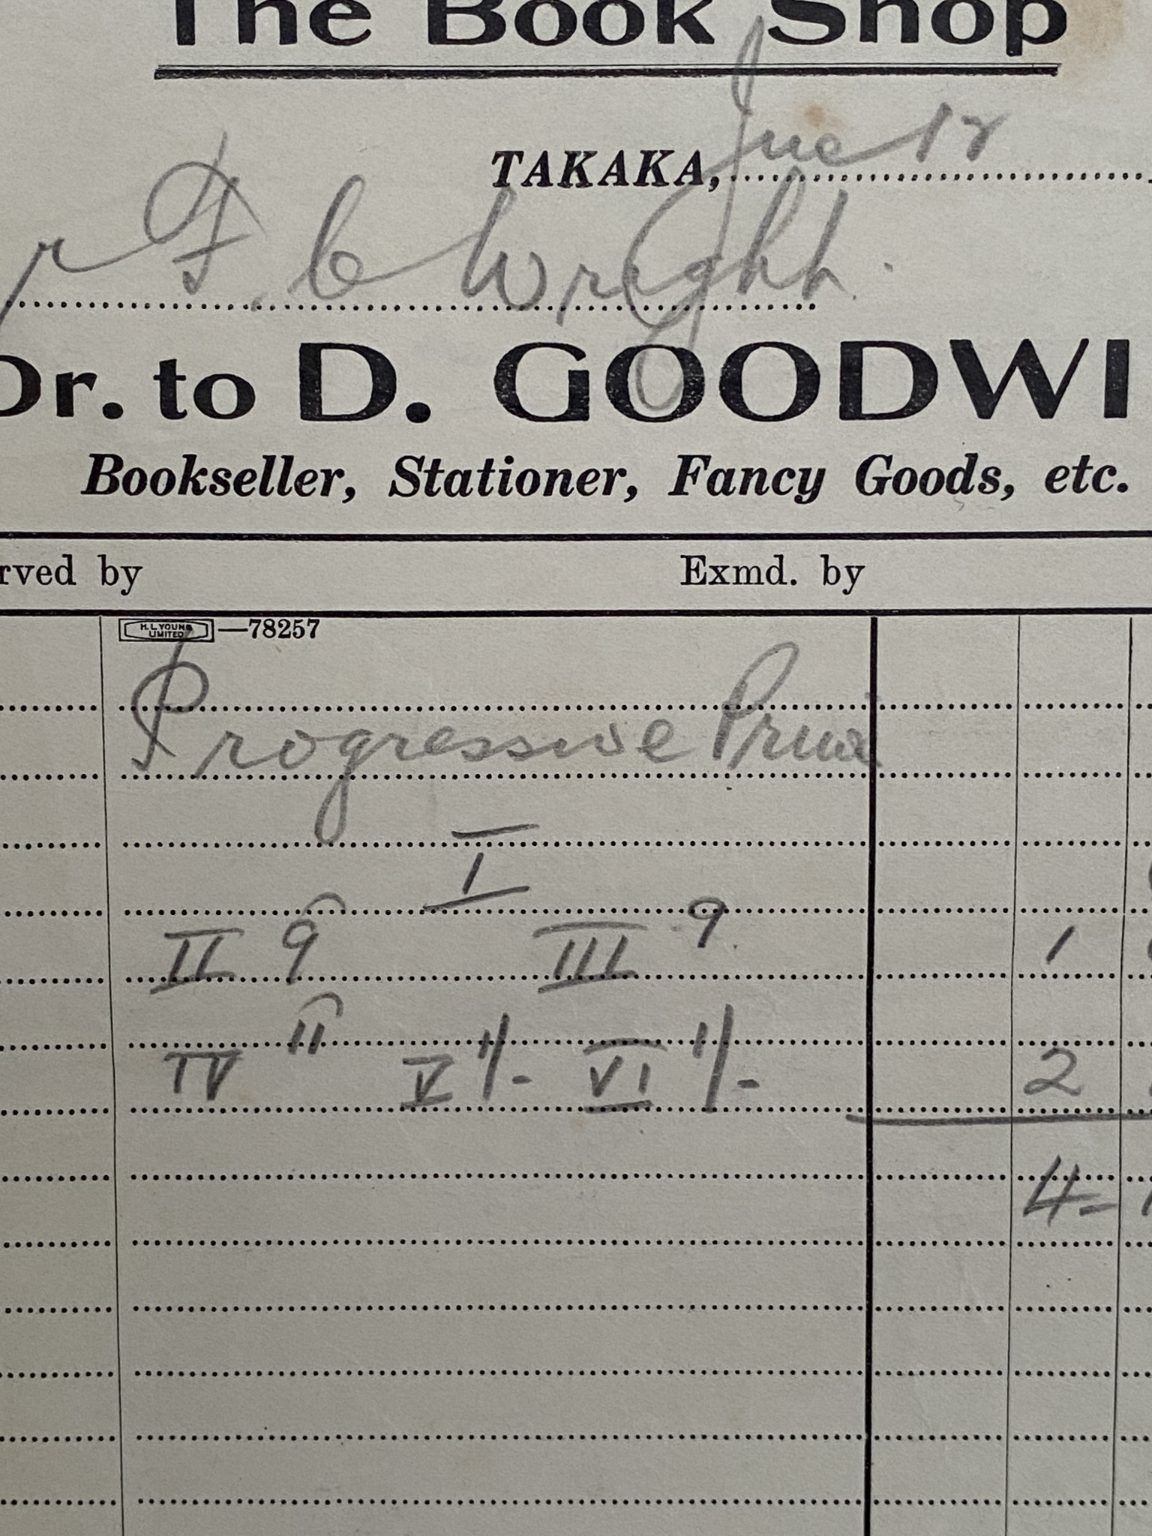 The Book Shop
TAKAKA, June 12
r F. C Wright.
Dr. to D. GOODWI
Bookseller, Stationer, Fancy Goods, etc.
rved by Exmd. by
H.L. YOUNG LIMITED —78257
Progressive Prim
I
II 9 III 9 1
IV 11 V 1/- VI 1/- 2
4-